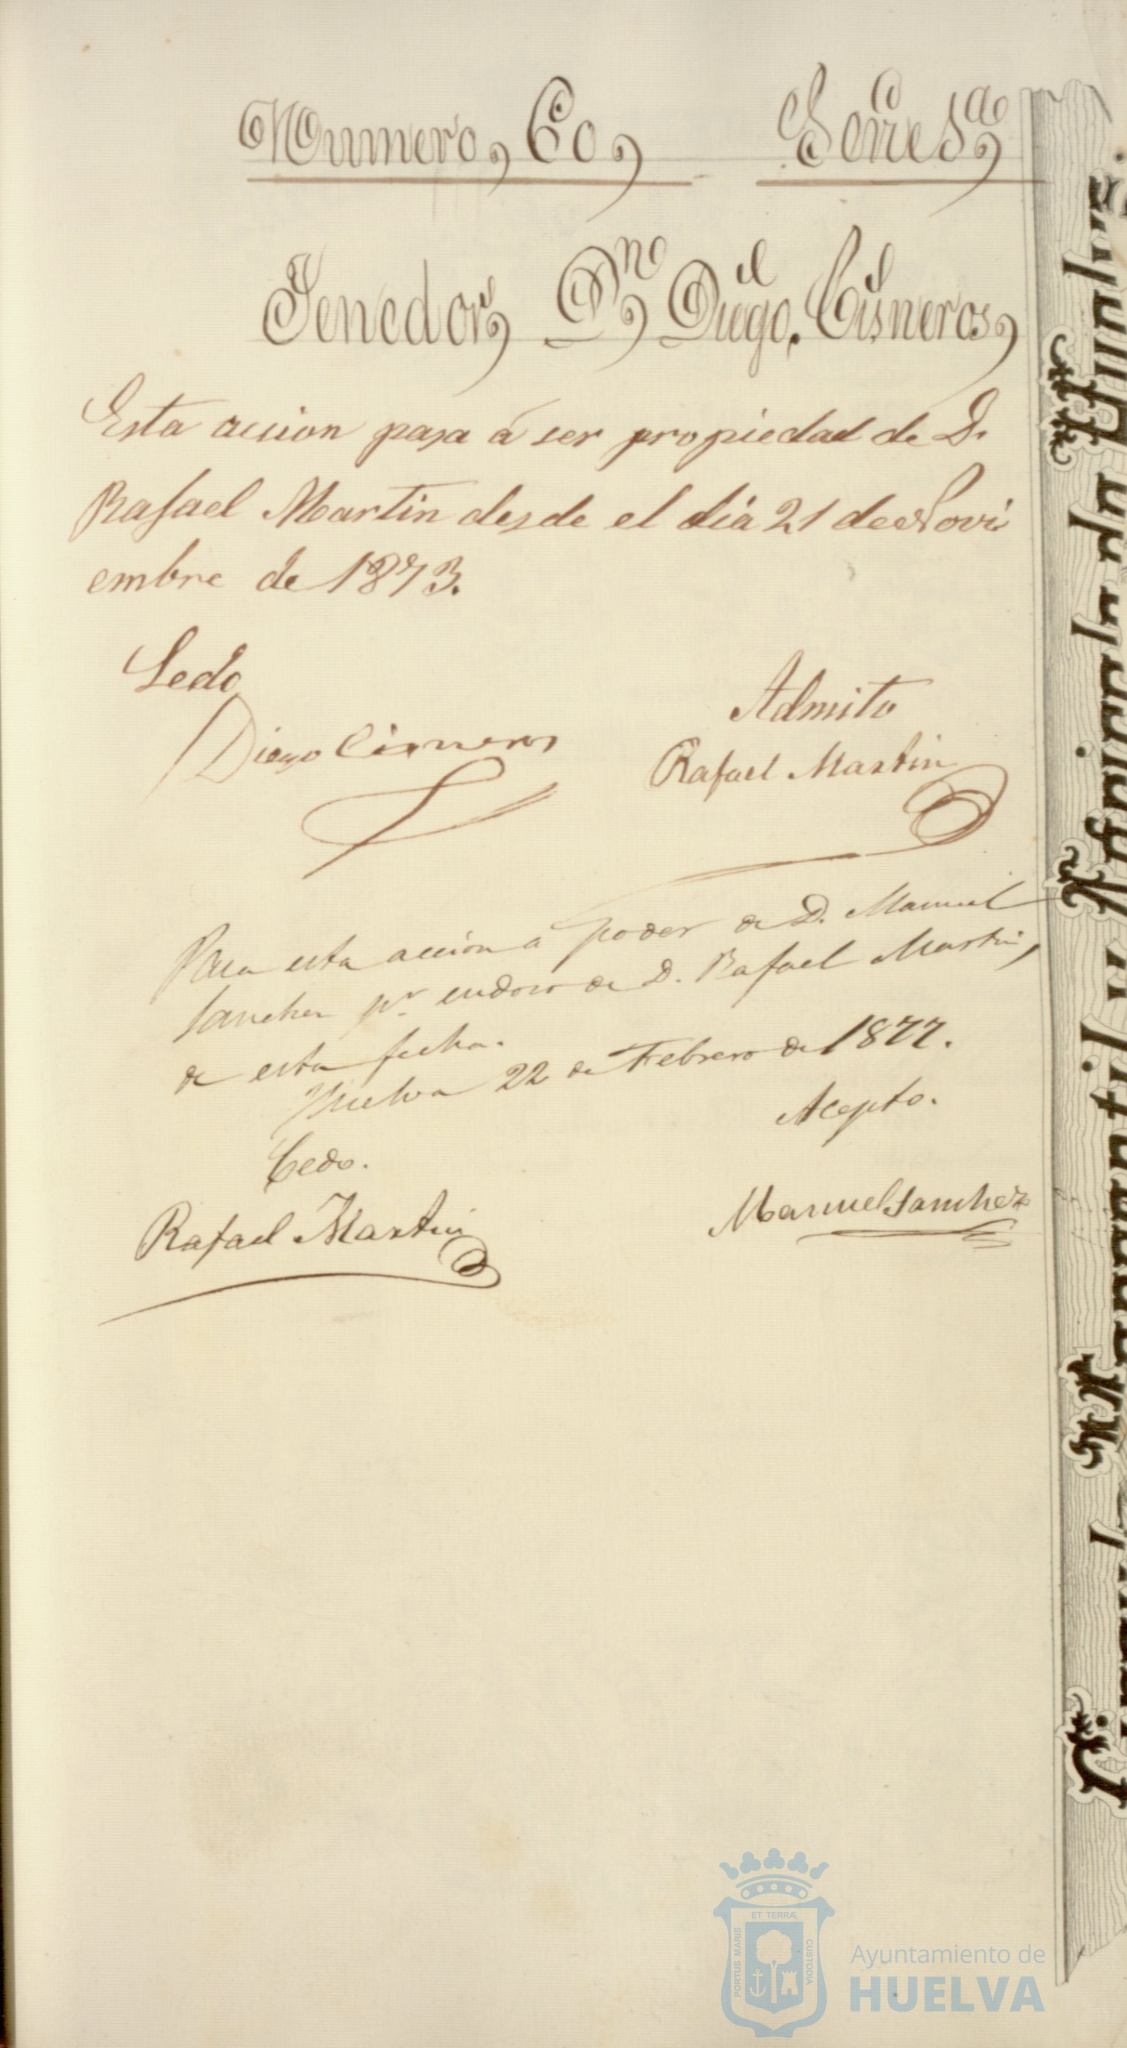 Numero, 60, Serie 5ª,
Tenedor, Dn. Diego Cisneros,
Esta accion pasa á ser propiedad de D.
Rafael Martin desde el dia 21 de Novi
embre de 1873.
Sedo
Diego Cisneros
Admito
Rafael Martin
Pasa esta acción a poder de D. Manuel
Sanchez pr. endoso de D. Rafael Martin,
de esta fecha.
Huelva 22 de Febrero de 1877.
Cedo.
Rafael Martin
Acepto.
Manuel Sanchez
ET TERRÆ
PORTUS MARIS
CUSTODIA
Ayuntamiento de
HUELVA